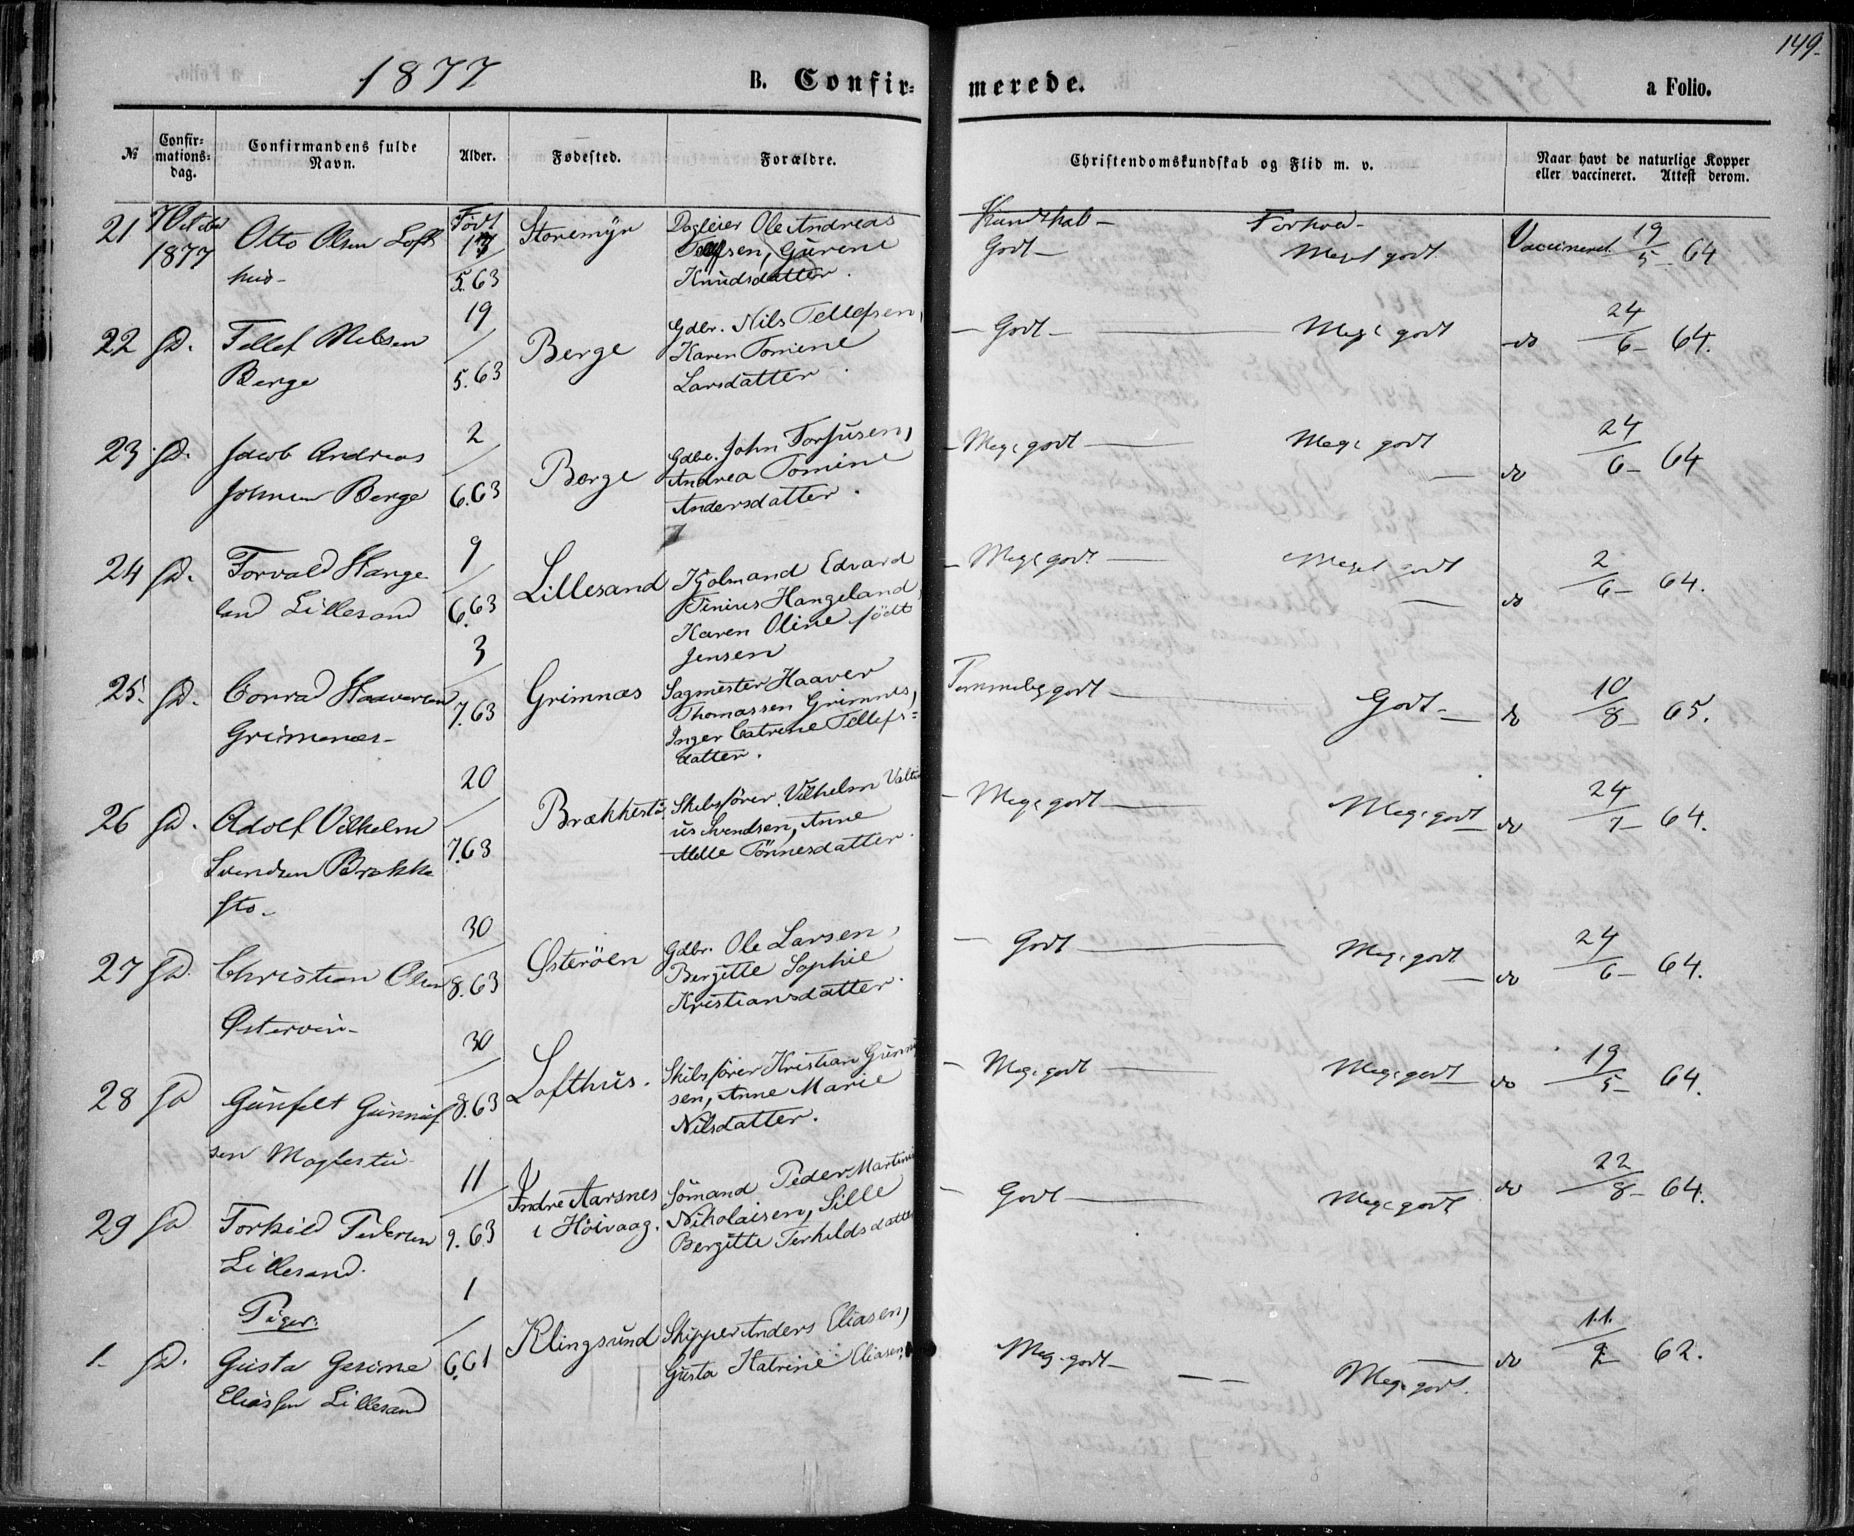 149.
1877
B. Confirmerede.
a Folio.
№
Confirmationsdag.
Confirmandens fulde Navn.
Alder.
Fødested.
Forældre.
Christendomskundskab og Flid m. v.
Naar havt de naturlige Kopper eller vaccineret. Attest derom.
21
1877
Otto Olsen Lofthus-
Født
5.63
Storemyr
Ole Andreas
Gurene
Knudsdatter.
Kundskab- Godt-
Forhold- Meget godt
Vaccineret 19/5- 64
22 sd.
Tellef Nielsen
Berge
19/5.63
Berge
Gdbr. Nils Tellefsen,
Karen Tomine
Larsdatter.
Godt-
Meg. godt
do 24/6- 64.
23 sd.
Jacob Andreas
Johnsen Berge
2/6.63
Berge
Gdbr. John Torjusen,
Andrea Tomine
Andersdatter.
Meg. godt
Meg. godt
do 24/6- 64
24 sd.
Torvald Hangeland Lillesand
9/6.63
Lillesand
Edvard
Tinius Hangeland,
Karen Oline født
Jensen
Meg. godt
Meget godt
do 2/6- 64.
25. sd.
Conrad Haaversen
Grimenæs-
3/7.63
Grimnæs
Sagmester Haaver
Thomassen Grimnes,
Inger Catrine Tellefsdatter.
Temmelig godt
Godt-
do 10/8- 65.
26 sd.
Adolf Vilhelm
Svendsen Brækkesto-
20/7.63
Brækkestø
Skibsfører Vilhelm
Svendsen, Anne
Tönnesdatter.
Meg. godt
Meg. godt
do 24/7- 64.
27 sd.
Christian Olsen
30/8.63
Österöen
Gdbr. Ole Larsen,
Bergitte Sophie
Kristiansdatter.
Godt
Meg. godt
do 24/6- 64.
28 sd
30/8.63
Lofthus.
Skibsfører Kristian
Anne Marie
Nilsdatter.
Meg. godt
Meg. godt
do 19/5- 64.
29 sd
Torkild Pedersen
Lillesand.
11/9.63
Indre Aarsnes
i Höivaag.
Sömand Peder
Nikolaisen, Sille
Bergitte
Godt
Meg. godt
do 22/8- 64.
Piger.
1- sd.
Gusta Gesine
Eliassen Lillesand
1/6.61
Klingsund
Skipper Anders Eliasen,
Gusta Katrine Eliasen
Meg. godt-
Meg. godt.
do 62.